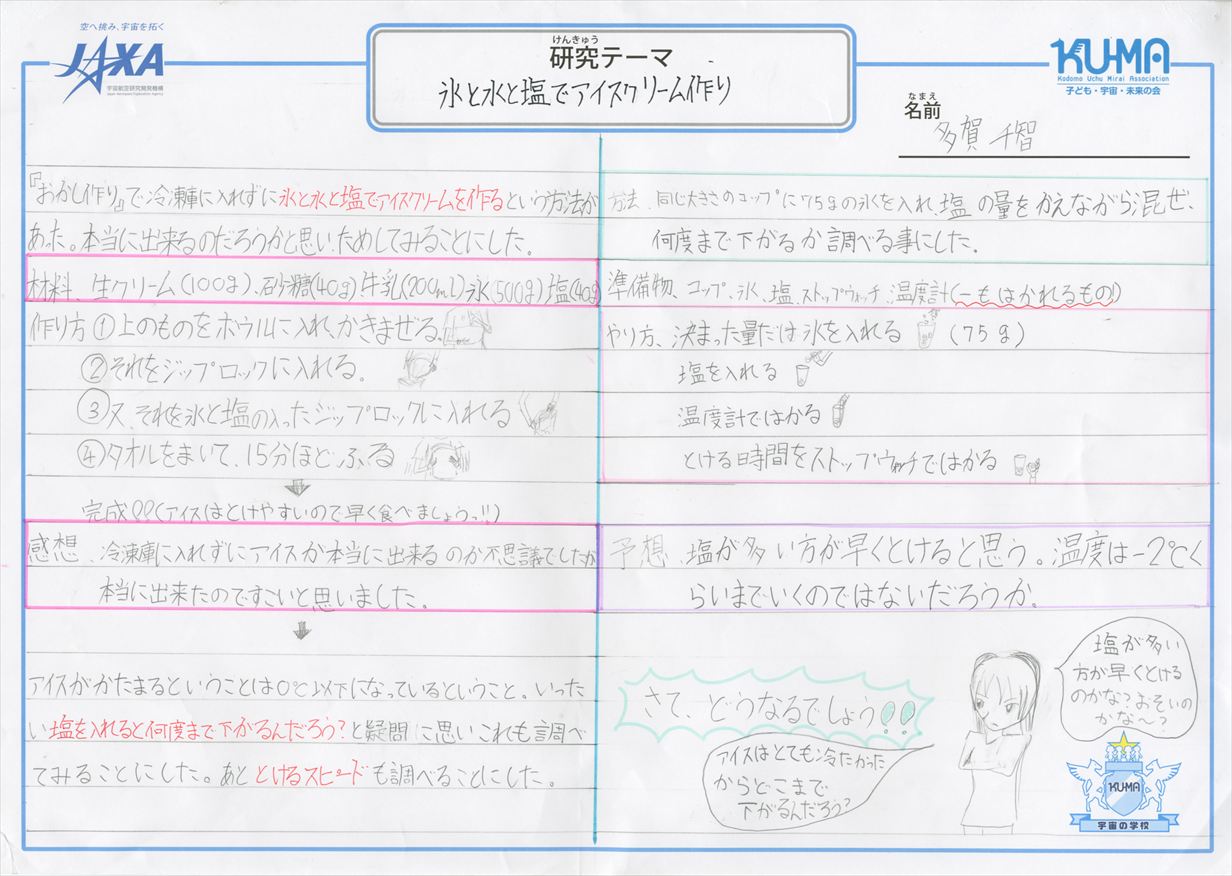 空へ挑み、宇宙を拓く
JAXA
宇宙航空研究開発機構
Japan Aerospace Exploration Agency
けんきゅう
研究テーマ
氷と水と塩でアイスクリーム作り
KU-MA
Kodomo Uchu Mirai Association
子ども・宇宙・未来の会
なまえ
名前
多賀 千智
『おかし作り』で冷凍庫に入れずに氷と水と塩でアイスクリームを作るという方法が
あった。本当に出来るのだろうかと思いためしてみることにした。
材料、生クリーム(100g)、砂糖(40g)牛乳(200ml)氷(500g)塩(40g)
作り方 ①上のものをボウルに入れ、かきまぜる。
②それをジップロックに入れる。
③又、それを氷と塩の入ったジップロックに入れる
④タオルをまいて、15分ほど、ふる
完成!!(アイスはとけやすいので早く食べましょうっ!!)
感想、冷凍庫に入れずにアイスが本当に出来るのか不思議でしたが
本当に出来たのですごいと思いました。
アイスがかたまるということは0℃以下になっているということ。いった
い塩を入れると何度まで下がるんだろう?と疑問に思いこれも調べ
てみることにした。あととけるスピードも調べることにした。
方法、同じ大きさのコップに75gの氷を入れ、塩の量をかえながら混ぜ、
何度まで下がるか調べる事にした。
準備物、コップ、氷、塩、ストップウォッチ、温度計(ーもはかれるもの!)
やり方、決まった量だけ氷を入れる (75g)
塩を入れる
温度計ではかる
とける時間をストップウォッチではかる
予想、塩が多い方が早くとけると思う。温度は-2℃く
らいまでいくのではないだろうか。
さて、どうなるでしょう!!
塩が多い
方が早くとける
のかな?おそいの
かな〜?
アイスはとても冷たかった
からどこまで
下がるんだろう?
KU-MA
宇宙の学校